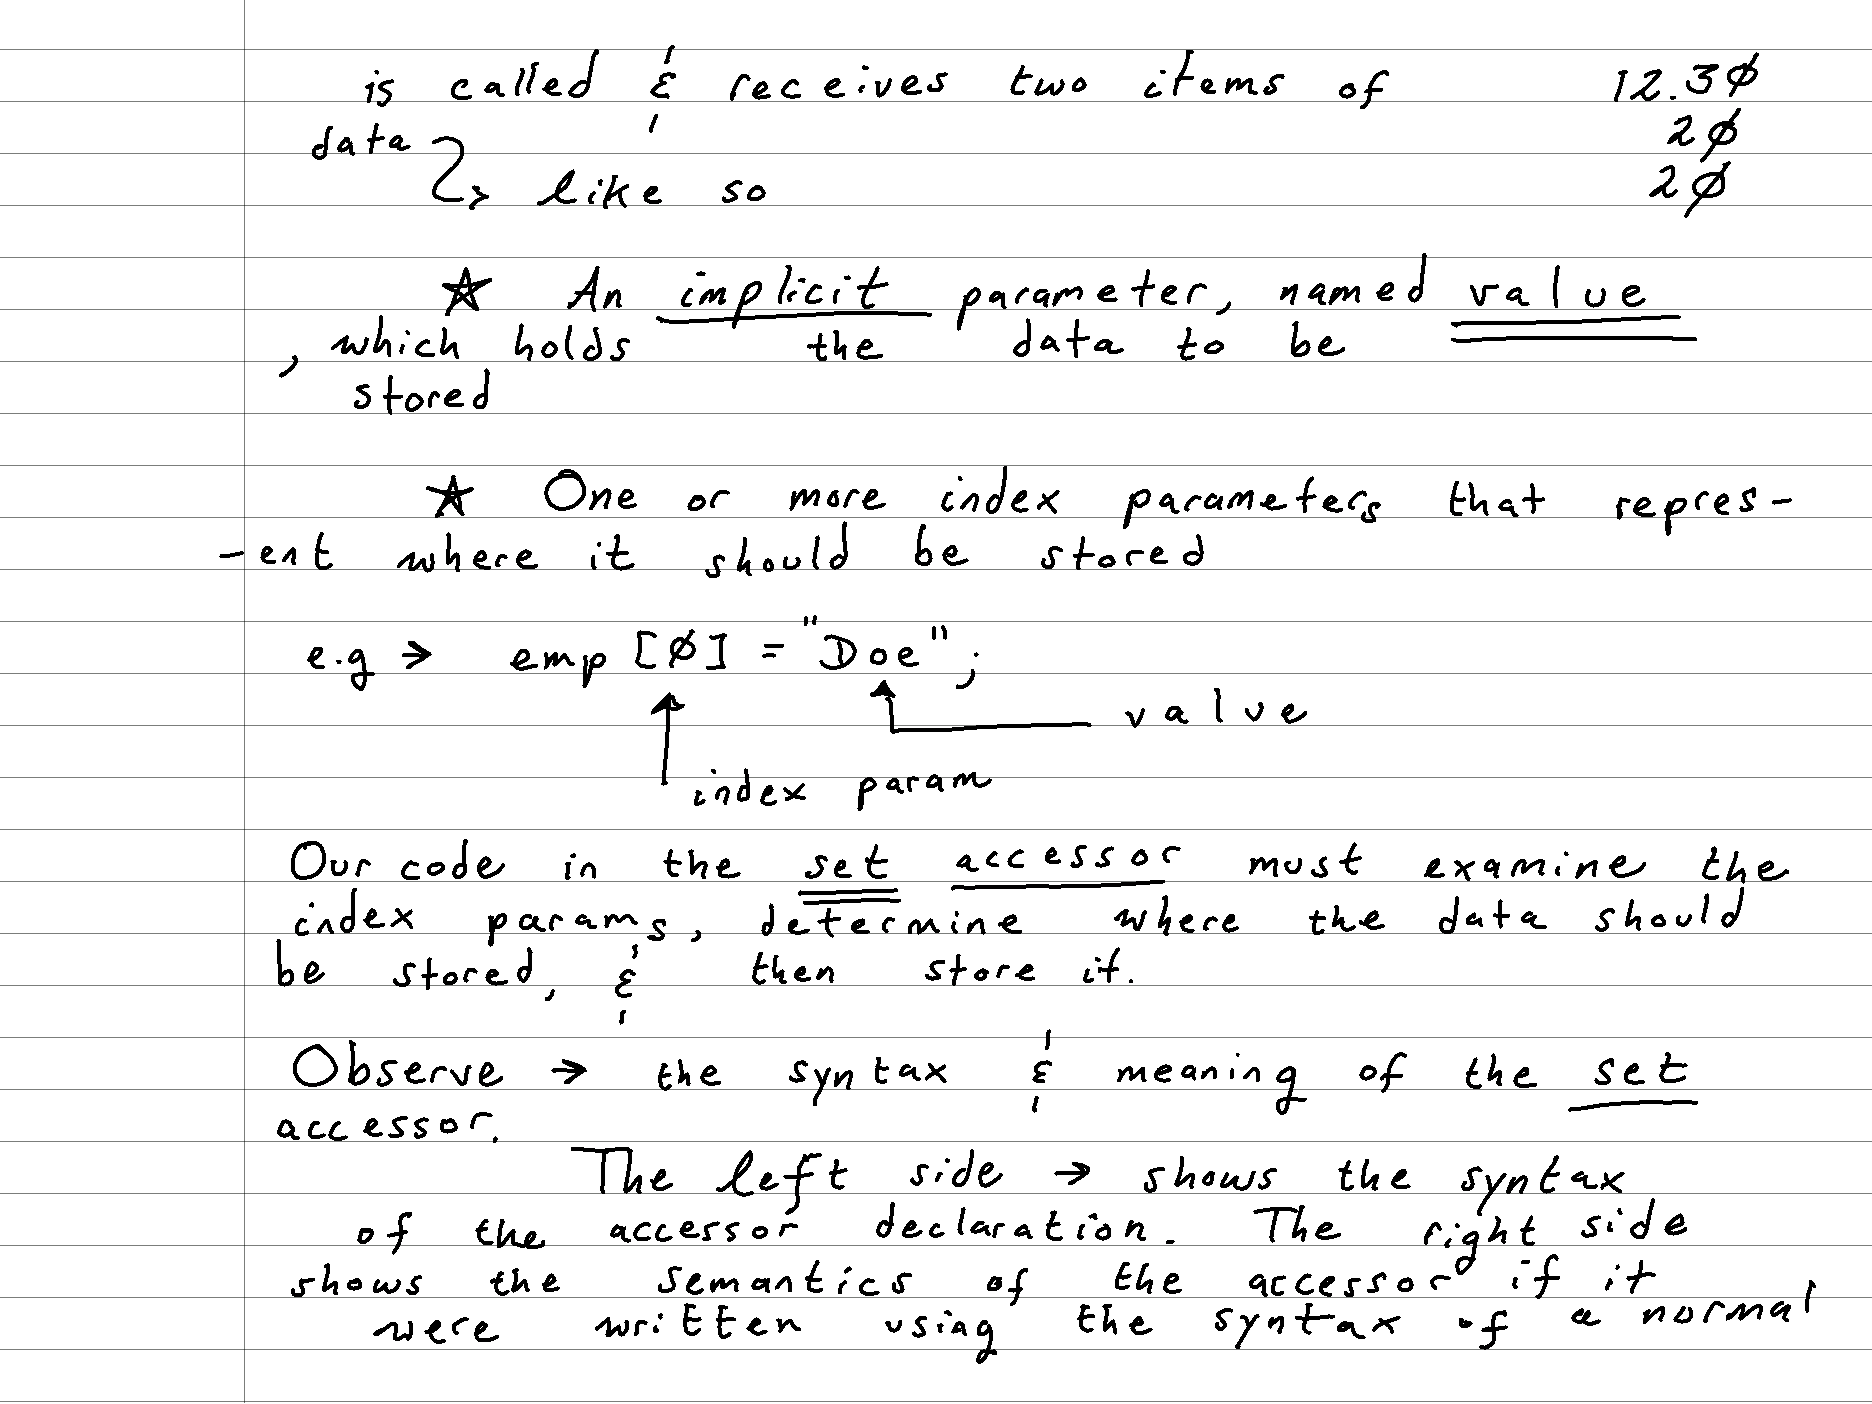 is called & receives two items of 12.3Ø
data 2Ø
↳ like so 2Ø
☆ An implicit parameter, named value
, which holds the data to be
stored
☆ One or more index parameters that repres-
-ent where it should be stored
e.g → emp [Ø] = "Doe";
value
index param
Our code in the set accessor must examine the
index params, determine where the data should
be stored, & then store it.
Observe → the syntax & meaning of the set
accessor.
The left side → shows the syntax
of the accessor declaration. The right side
shows the semantics of the accessor if it
were written using the syntax of a normal